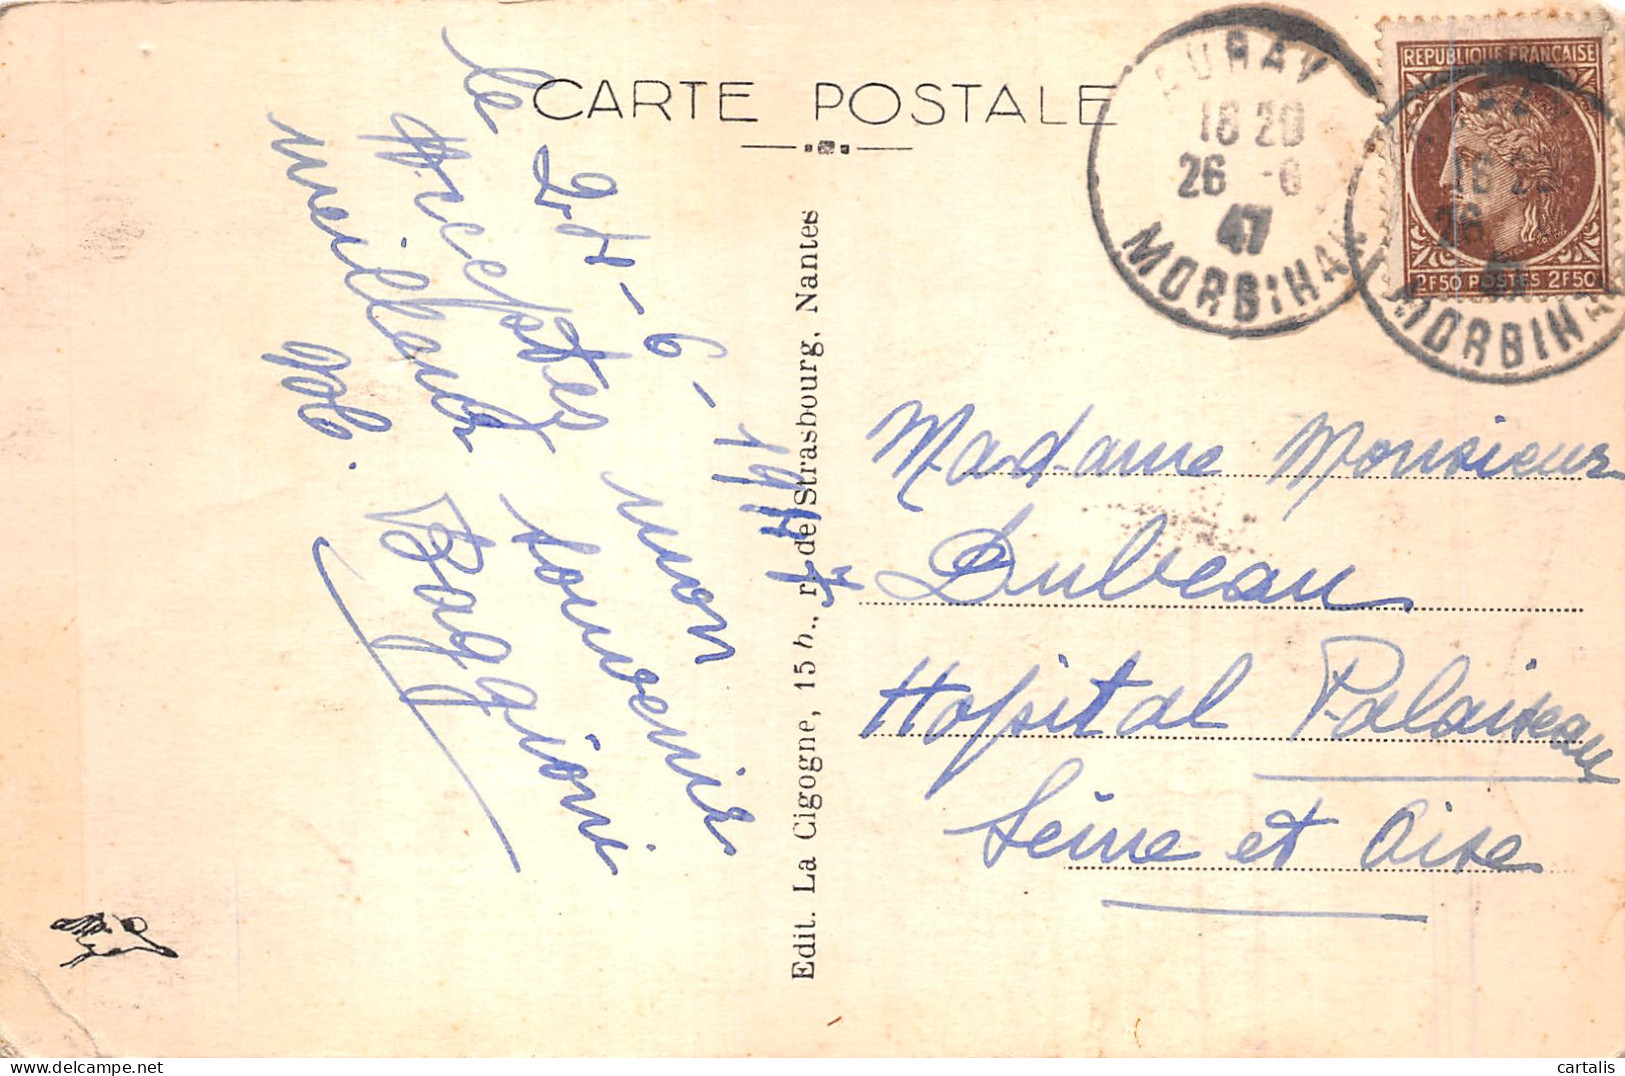 CARTE POSTALE
AURAY
16 20
26 -6
47
MORBIHAN
REPUBLIQUE FRANÇAISE
2F50 POSTES 2F50
16 20
26
47
MORBIHA
le 24-6-1947
Acceptez mon
meilleur souvenir
Baggioni
Edit. La Cigogne, 15 b., r. de Strasbourg, Nantes
Madame Monsieur
Dubeau
Hopital Palaiseau
Seine et Oise
cartalis